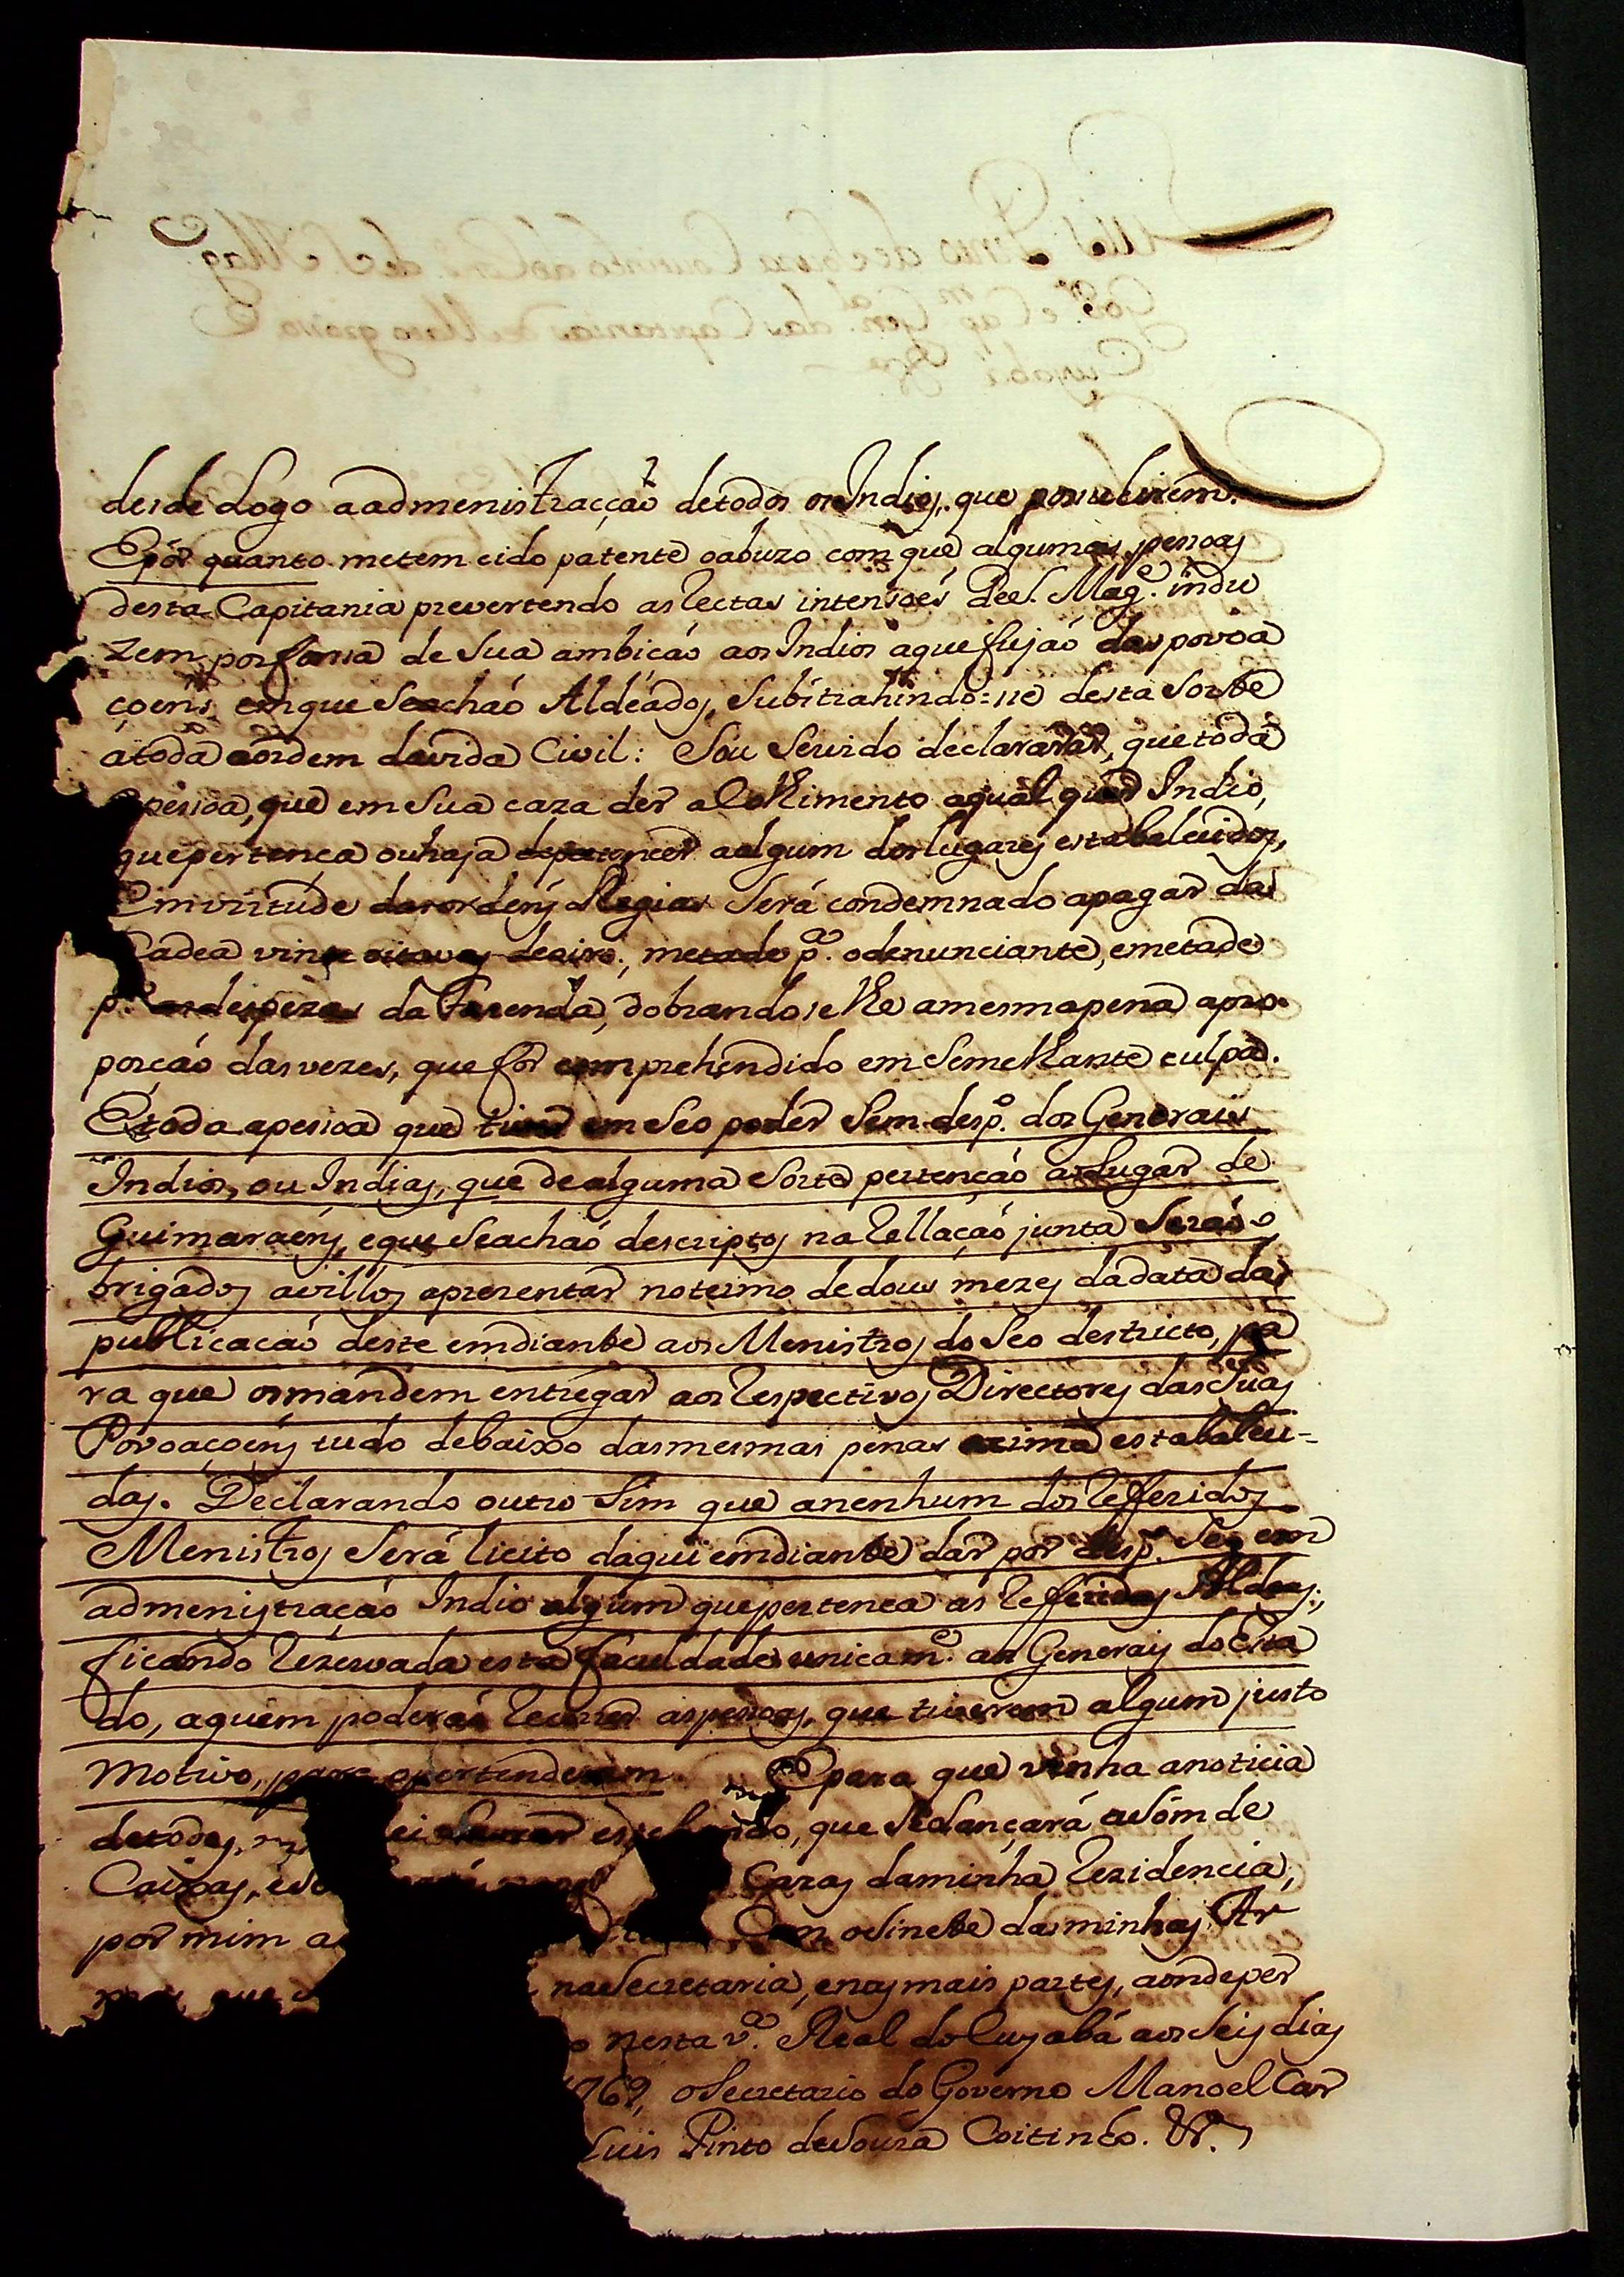 desde Logo aadmenistracção detodos osIndios, que possuhirem.
Epór quanto metem cido patente oabuzo com que algumas pessoas
desta Capitania prevertendo asrectas intensoés DeS. Mag.e indu
zem, porforsa de Sua ambicáo aosIndios aquefujaó das povoa
çoens, emque Seacháo Aldeados, Subitrahindo=sse desta Sorte
atoda aordem davida Civil: Sou Servido declarar, quetoda
apessoa, que emSua caza der alohimento aqualquer Indio,
quepertenca ouhaja depertencer aalgum doslugares estabelecidos,
Emvirtude dasordens Regias Será condemnado apagar da
Cadea vinte oitavas deoiro, metade p.a odenunciante, emetade
p.a asdespezas da Fazenda, dobrandoselhe amesmapena apro-
porcáo dasvezes, que for comprehendido em Semelhante culpa.
Etoda apessoa que tiver em Seo poder Sem desp.o dos Generais
Indios, ou Indias, que dealguma Sorte pertencáo aoLugar de
Guimaraens, eque Seachaó descriptos na rellaçáo junta Seráo o
brigados avillos aprezentar notermo dedous mezes dadata da
publicacaó deste emdiante aos Menistros do Seo destricto, pa
ra que osmandem entregar aos respectivos Directores dasSuas
Povoaçoens tudo debaixo dasmesmas penas acima estabaleci-
das. Declarando outro Sim que anenhum dos refferidos
Menistros Será licito daqui emdiante dar por desp.o Seo em
admenistraçáo Indio algum quepertenca as refferidas Aldeas,
ficando rezervada esta faculdade unicam.e aos Generais do Esta
do, aquem poderáo recorrer aspessoas, que tiverem algum justo
Motivo, para opertenderem. Epara que venha anoticia
detodos, ei Lavrar este bando, que Selançará aSom de
Caixas, eSe Cazas daminha rezidencia,
por mim a Com oSinete dasminhas Ar
naSecretaria, enasmais partes, aondeper
o Nesta v.a Real doCuyabá aosSeis dias
1769, oSecretario do Governo Manoel Car
Luis Pinto deSouza Coitinho. &.a